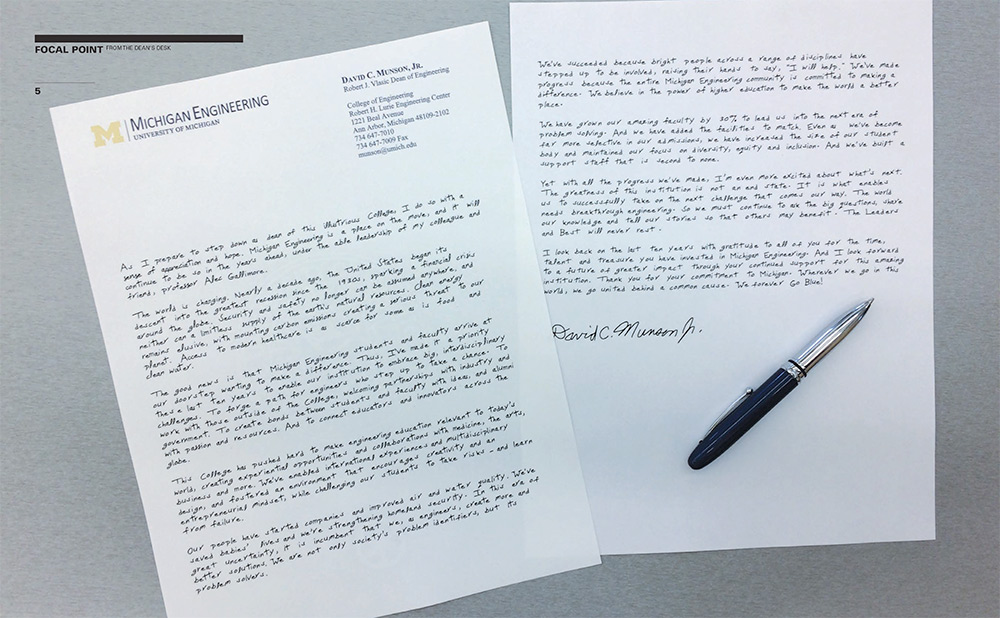 FOCAL POINT FROM THE DEAN'S DESK
5
M | MICHIGAN ENGINEERING
UNIVERSITY OF MICHIGAN
DAVID C. MUNSON, JR.
Robert J. Vlasic Dean of Engineering
College of Engineering
Robert H. Lurie Engineering Center
1221 Beal Avenue
Ann Arbor, Michigan 48109-2102
734 647-7010
734 647-7009 Fax
munson@umich.edu
As I prepare to step down as dean of this illustrious College, I do so with a
sense of appreciation and hope. Michigan Engineering is a place on the move, and it will
continue to be so in the years ahead, under the able leadership of my colleague and
friend, professor Alec Gallimore.
The world is changing. Nearly a decade ago, the United States began its
descent into the greatest recession since the 1930s, sparking a financial crisis
around the globe. Security and safety no longer can be assumed anywhere, and
neither can a limitless supply of the earth's natural resources. Clean energy
remains elusive, with mounting carbon emissions creating a serious threat to our
planet. Access to modern healthcare is as scarce for some as is food and
clean water.
The good news is that Michigan Engineering students and faculty arrive at
our doorstep wanting to make a difference. Thus, I've made it a priority
these last ten years to enable our institution to embrace big, interdisciplinary
challenges. To forge a path for engineers who step up to take a chance. To
work with those outside of the College, welcoming partnerships with industry and
government. To create bonds between students and faculty with ideas, and alumni
with passion and resources. And to connect educators and innovators across the
globe.
This College has pushed hard to make engineering education relevant to today's
world, creating experiential opportunities and collaborations with medicine, the arts,
business and more. We've enabled international experiences and multidisciplinary
design, and fostered an environment that encourages creativity and an
entrepreneurial mindset, while challenging our students to take risks - and learn
from failure.
Our people have started companies and improved air and water quality. We've
saved babies' lives and we're strengthening homeland security. In this era of
great uncertainty, it is incumbent that we, as engineers, create more and
better solutions. We are not only society's problem identifiers, but its
problem solvers.
We've succeeded because bright people across a range of disciplines have
stepped up to be involved, raising their hands to say, "I will help." We've made
progress because the entire Michigan Engineering community is committed to making a
difference. We believe in the power of higher education to make the world a better
place.
We have grown our amazing faculty by 30% to lead us into the next era of
problem solving. And we have added the facilities to match. Even as we've become
far more selective in our admissions, we have increased the size of our student
body and maintained our focus on diversity, equity and inclusion. And we've built a
support staff that is second to none.
Yet with all the progress we've made, I'm even more excited about what's next.
The greatness of this institution is not an end state. It is what enables
us to successfully take on the next challenge that comes our way. The world
needs breakthrough engineering. So we must continue to ask the big questions, share
our knowledge and tell our stories so that others may benefit. The Leaders
and Best will never rest.
I look back on the last ten years with gratitude to all of you for the time,
talent and treasure you have invested in Michigan Engineering. And I look forward
to a future of greater impact through your continued support for this amazing
institution. Thank you for your commitment to Michigan. Wherever we go in this
world, we go united behind a common cause. We forever Go Blue!
David C. Munson Jr.